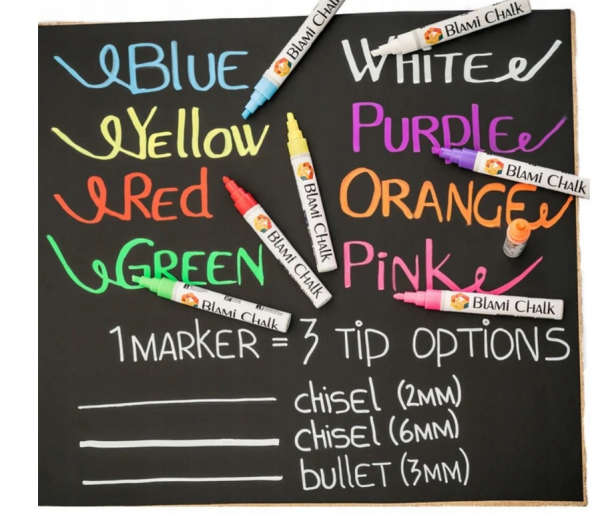 BLUE
WHITE
Yellow
PURPLE
RED
ORANGE
GREEN
PINK
BLAMI CHALK
BLAMI CHALK
BLAMI CHALK
BLAMI CHALK
BLAMI CHALK
BLAMI CHALK
BLAMI CHALK
1 MARKER = 3 TIP OPTIONS
chisel (2MM)
chisel (6MM)
bulleT (3MM)